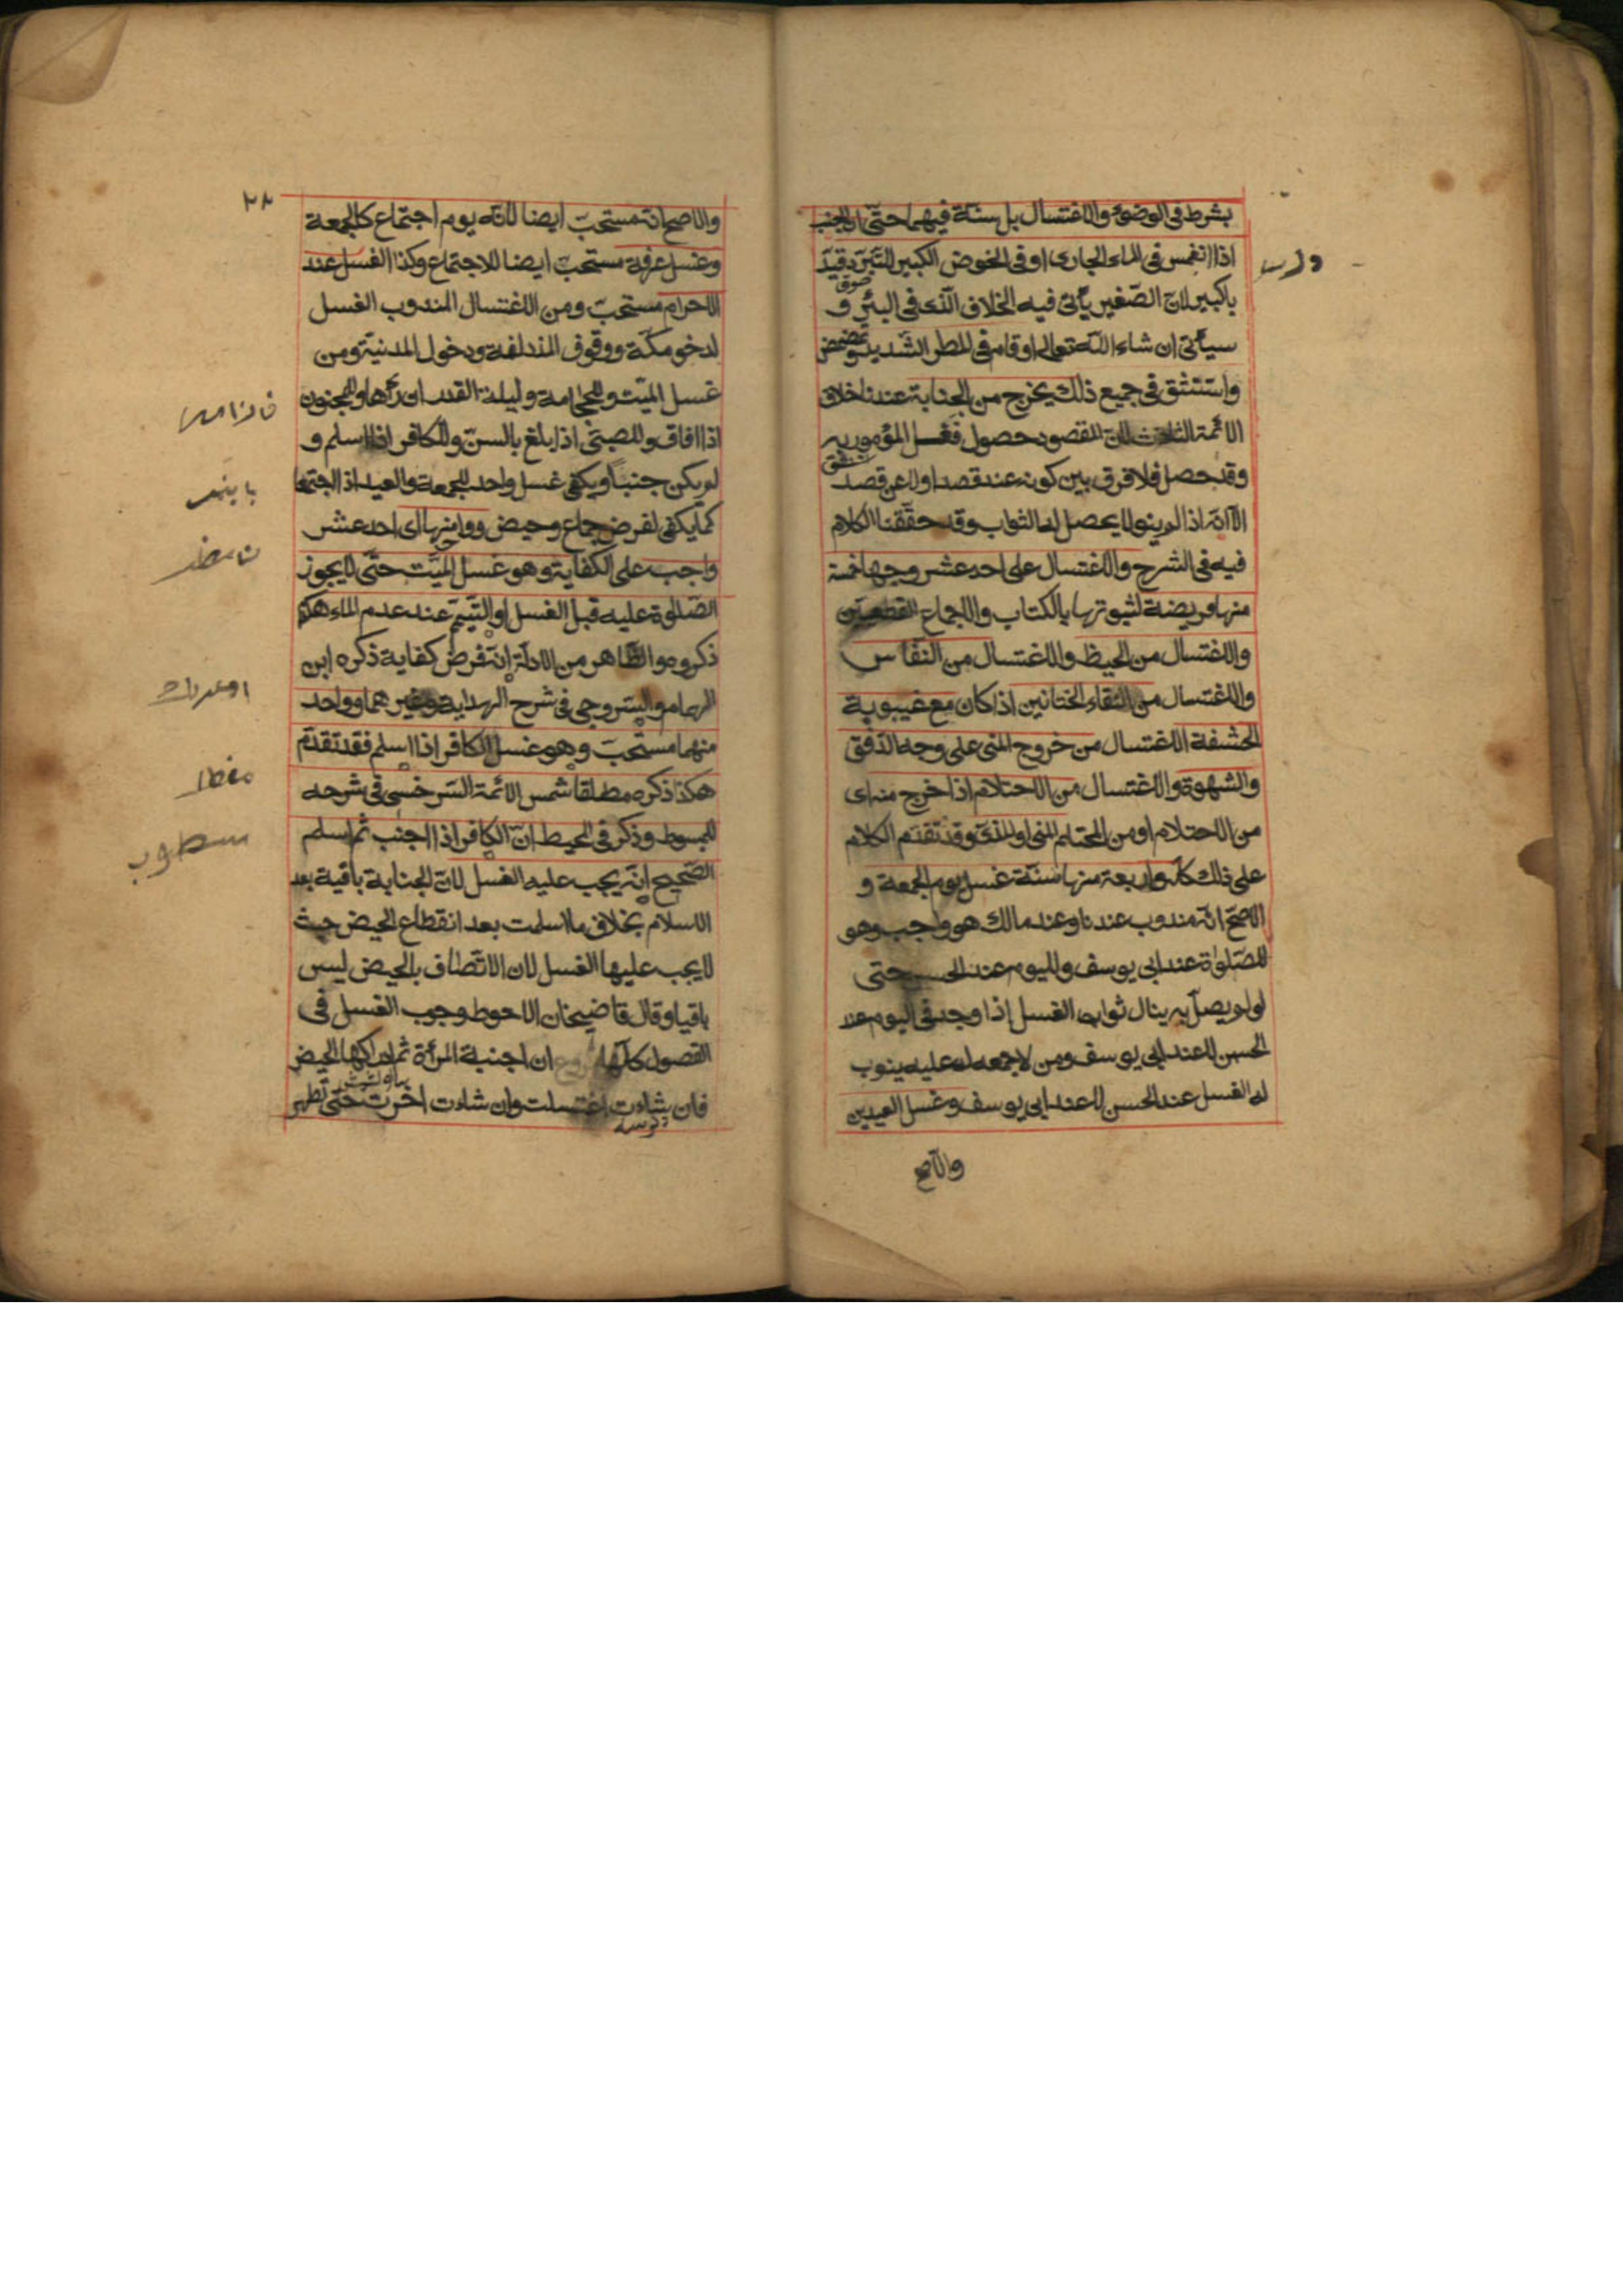 بشرط فى الوضوء والاغتسال بل سنة فيهما حتى ان الجنب
اذا انغمس فى الماء الجارى او فى الخوض الكبير للتبرد قيد
بالكبير لان الصغير يأتى فيه الخلاف الذى فى البئر و
سيأتى ان شاء الله تعالى او قام فى المطر الشديد وتمضمض
واستنشق فى جميع ذلك يخرج من الجنابة عندنا خلاف
الائمة الثلاث لان المقصود حصول فغسل المؤمور به
وقد حصل فلا فرق بين كونه عند قصد او لا عن قصد
الا انه اذا لم ينو لا يحصل له الثواب وقد حققنا الكلام
فيه فى الشرح والاغتسال على احد عشر وجها خمسة
منها فريضة لثبوتها بالكتاب والاجماع القطعيين
والاغتسال من الحيظ والاغتسال من النفاس
والاغتسال من التقاء الختانين اذا كان مع غيبوبة
الحشفة الاغتسال من خروج المنى على وجه الدفق
والشهوة والاغتسال من الاحتلام اذا خرج منه اى
من الاحتلام او من المحتلم المنى او المذى وقد تقدم الكلام
على ذلك كله واربعة منها سنة غسل يوم الجمعة و
الاصح انه مندوب عندنا وعند مالك هو واجب وهو
للصلوة عند ابى يوسف ولليوم عند الحسن حتى
لو لم يصل به ينال ثواب الغسل اذا وجد فى اليوم عند
الحسن لا عند ابى يوسف ومن لا جمعه له عليه ينوب
له الغسل عند الحسن لا عند ابى يوسف وغسل العيدين
والاصح
٢٨
والاصح انه مستحب ايضا لانه يوم اجتماع كالجمعة
وغسل عرفة مستحب ايضا للاجتماع وكذا الغسل عند
الاحرام مستحب ومن الاغتسال المندوب الغسل
لدخو مكة ووقوف المزدلفة ودخول المدنية ومن
غسل الميت وللحجامة وليلة القدر ان رأها وللمجنون
اذا افاق وللصبى اذا بلغ بالسن وللكافر اذا اسلم و
لم يكن جنبا ويكفى غسل واحد للجمعة والعيد اذا اجتمعا
كما يكفى لفرض جماع وحيض وواحد منها اى احد عشر
واجب على الكفاية وهو غسل الميت حتى لا يجوز
الصلوة عليه قبل الغسل او التيمم عند عدم الماء هكذا
ذكروه والظاهر من الادلة انه فرض كفاية ذكره ابن
الهمام والسروجى فى شرح الهداية وغيرهما وواحد
منهما مستحب وهو غسل الكافر اذا اسلم فقد تقدم
هكذا ذكره مطلقا شمس الائمة السرخسى فى شرحه
للمبسوط وذكر فى المحيط ان الكافر اذا اجنب ثم اسلم
الصحيح انه يجب عليه الغسل لان الجنابة باقية بعد
الاسلام بخلاف ما اسلمت بعد انقطاع الحيض حيث
لا يجب عليها الغسل لان الاتصاف بالحيض ليس
باقيا وقال قاضيخان الاحوط وجوب الغسل فى
الفصول كلها فروع ان اجنبة المرأة ثم ادركها الحيض
فان شاءت اغتسلت وان شاءت اخرت حتى تطهر